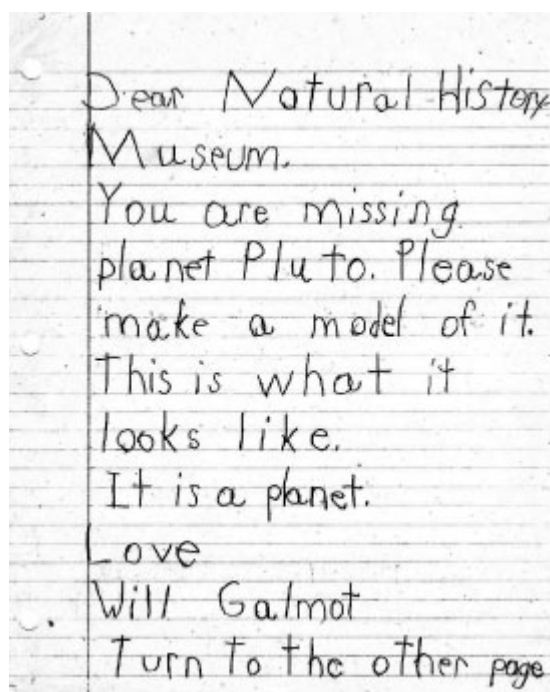 Dear Natural History
Museum.
You are missing
planet Pluto. Please
make a model of it.
This is what it
looks like.
It is a planet.
Love
Will Galmot
Turn to the other page